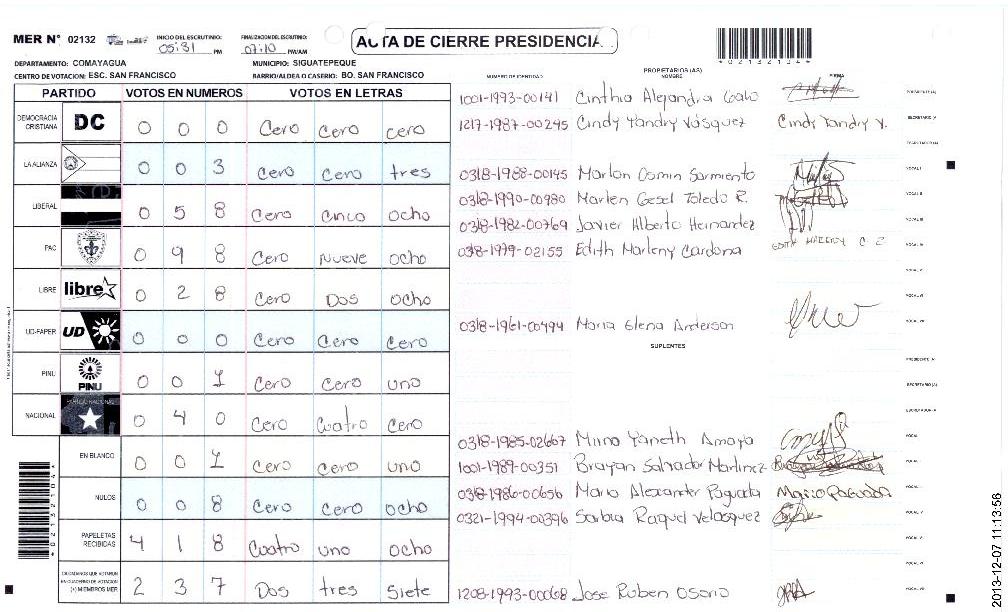 MER N° 02132 INICIO DEL ESCRUTINIO: 05:31 PM FINALIZACION DEL ESCRUTINIO: 07:10 PM/AM ACTA DE CIERRE PRESIDENCIA
DEPARTAMENTO: COMAYAGUA MUNICIPIO: SIGUATEPEQUE
CENTRO DE VOTACION: ESC. SAN FRANCISCO BARRIO/ALDEA O CASERIO: BO. SAN FRANCISCO
PARTIDO VOTOS EN NUMEROS VOTOS EN LETRAS
DEMOCRACIA CRISTIANA DC 0 0 0 Cero Cero cero
LA ALIANZA 0 0 3 Cero Cero tres
LIBERAL 0 5 8 Cero Cinco ocho
PAC 0 9 8 Cero Nueve ocho
LIBRE libre 0 2 8 Cero Dos ocho
UD-FAPER UD 0 0 0 Cero Cero Cero
PINU PINU 0 0 1 Cero Cero uno
NACIONAL 0 4 0 Cero Cuatro Cero
EN BLANCO 0 0 1 Cero Cero uno
NULOS 0 0 8 Cero Cero ocho
PAPELETAS RECIBIDAS 4 1 8 Cuatro uno ocho
CIUDADANOS QUE VOTARON EN CUADERNO DE VOTACION (+) MIEMBROS MER 2 3 7 Dos tres Siete
PROPIETARIOS (AS)
NUMERO DE IDENTIDAD NOMBRE FIRMA
1001-1993-00141 Cinthia Alejandra PRESIDENTE (A)
1217-1987-00245 Cindy Yandry Vásquez Cindy Yandry V. SECRETARIO (A)
ESCRUTADOR (A)
0318-1988-00145 Marlon Osmin Sarmiento VOCAL I
0318-1990-00980 Marlen Gesel Toledo R. VOCAL II
0318-1982-00769 Javier Alberto Hernandez VOCAL III
0318-1979-02155 Edith Marleny Cardona EDITH MARLENY C. VOCAL IV
VOCAL V
VOCAL VI
0318-1961-00494 Maria Elena Anderson VOCAL VII
SUPLENTES
PRESIDENTE (A)
SECRETARIO (A)
ESCRUTADOR (A)
0318-1985-02667 Mirna Yaneth Amaya VOCAL I
1001-1989-00351 Brayan Salvador Martinez
0318-1986-00656 Mario Alexander Paguada Mario Paguada
0321-1994-00396 Raquel Velasquez
1208-1993-00068 Jose Ruben Osorio
2013-12-07 11:13:56